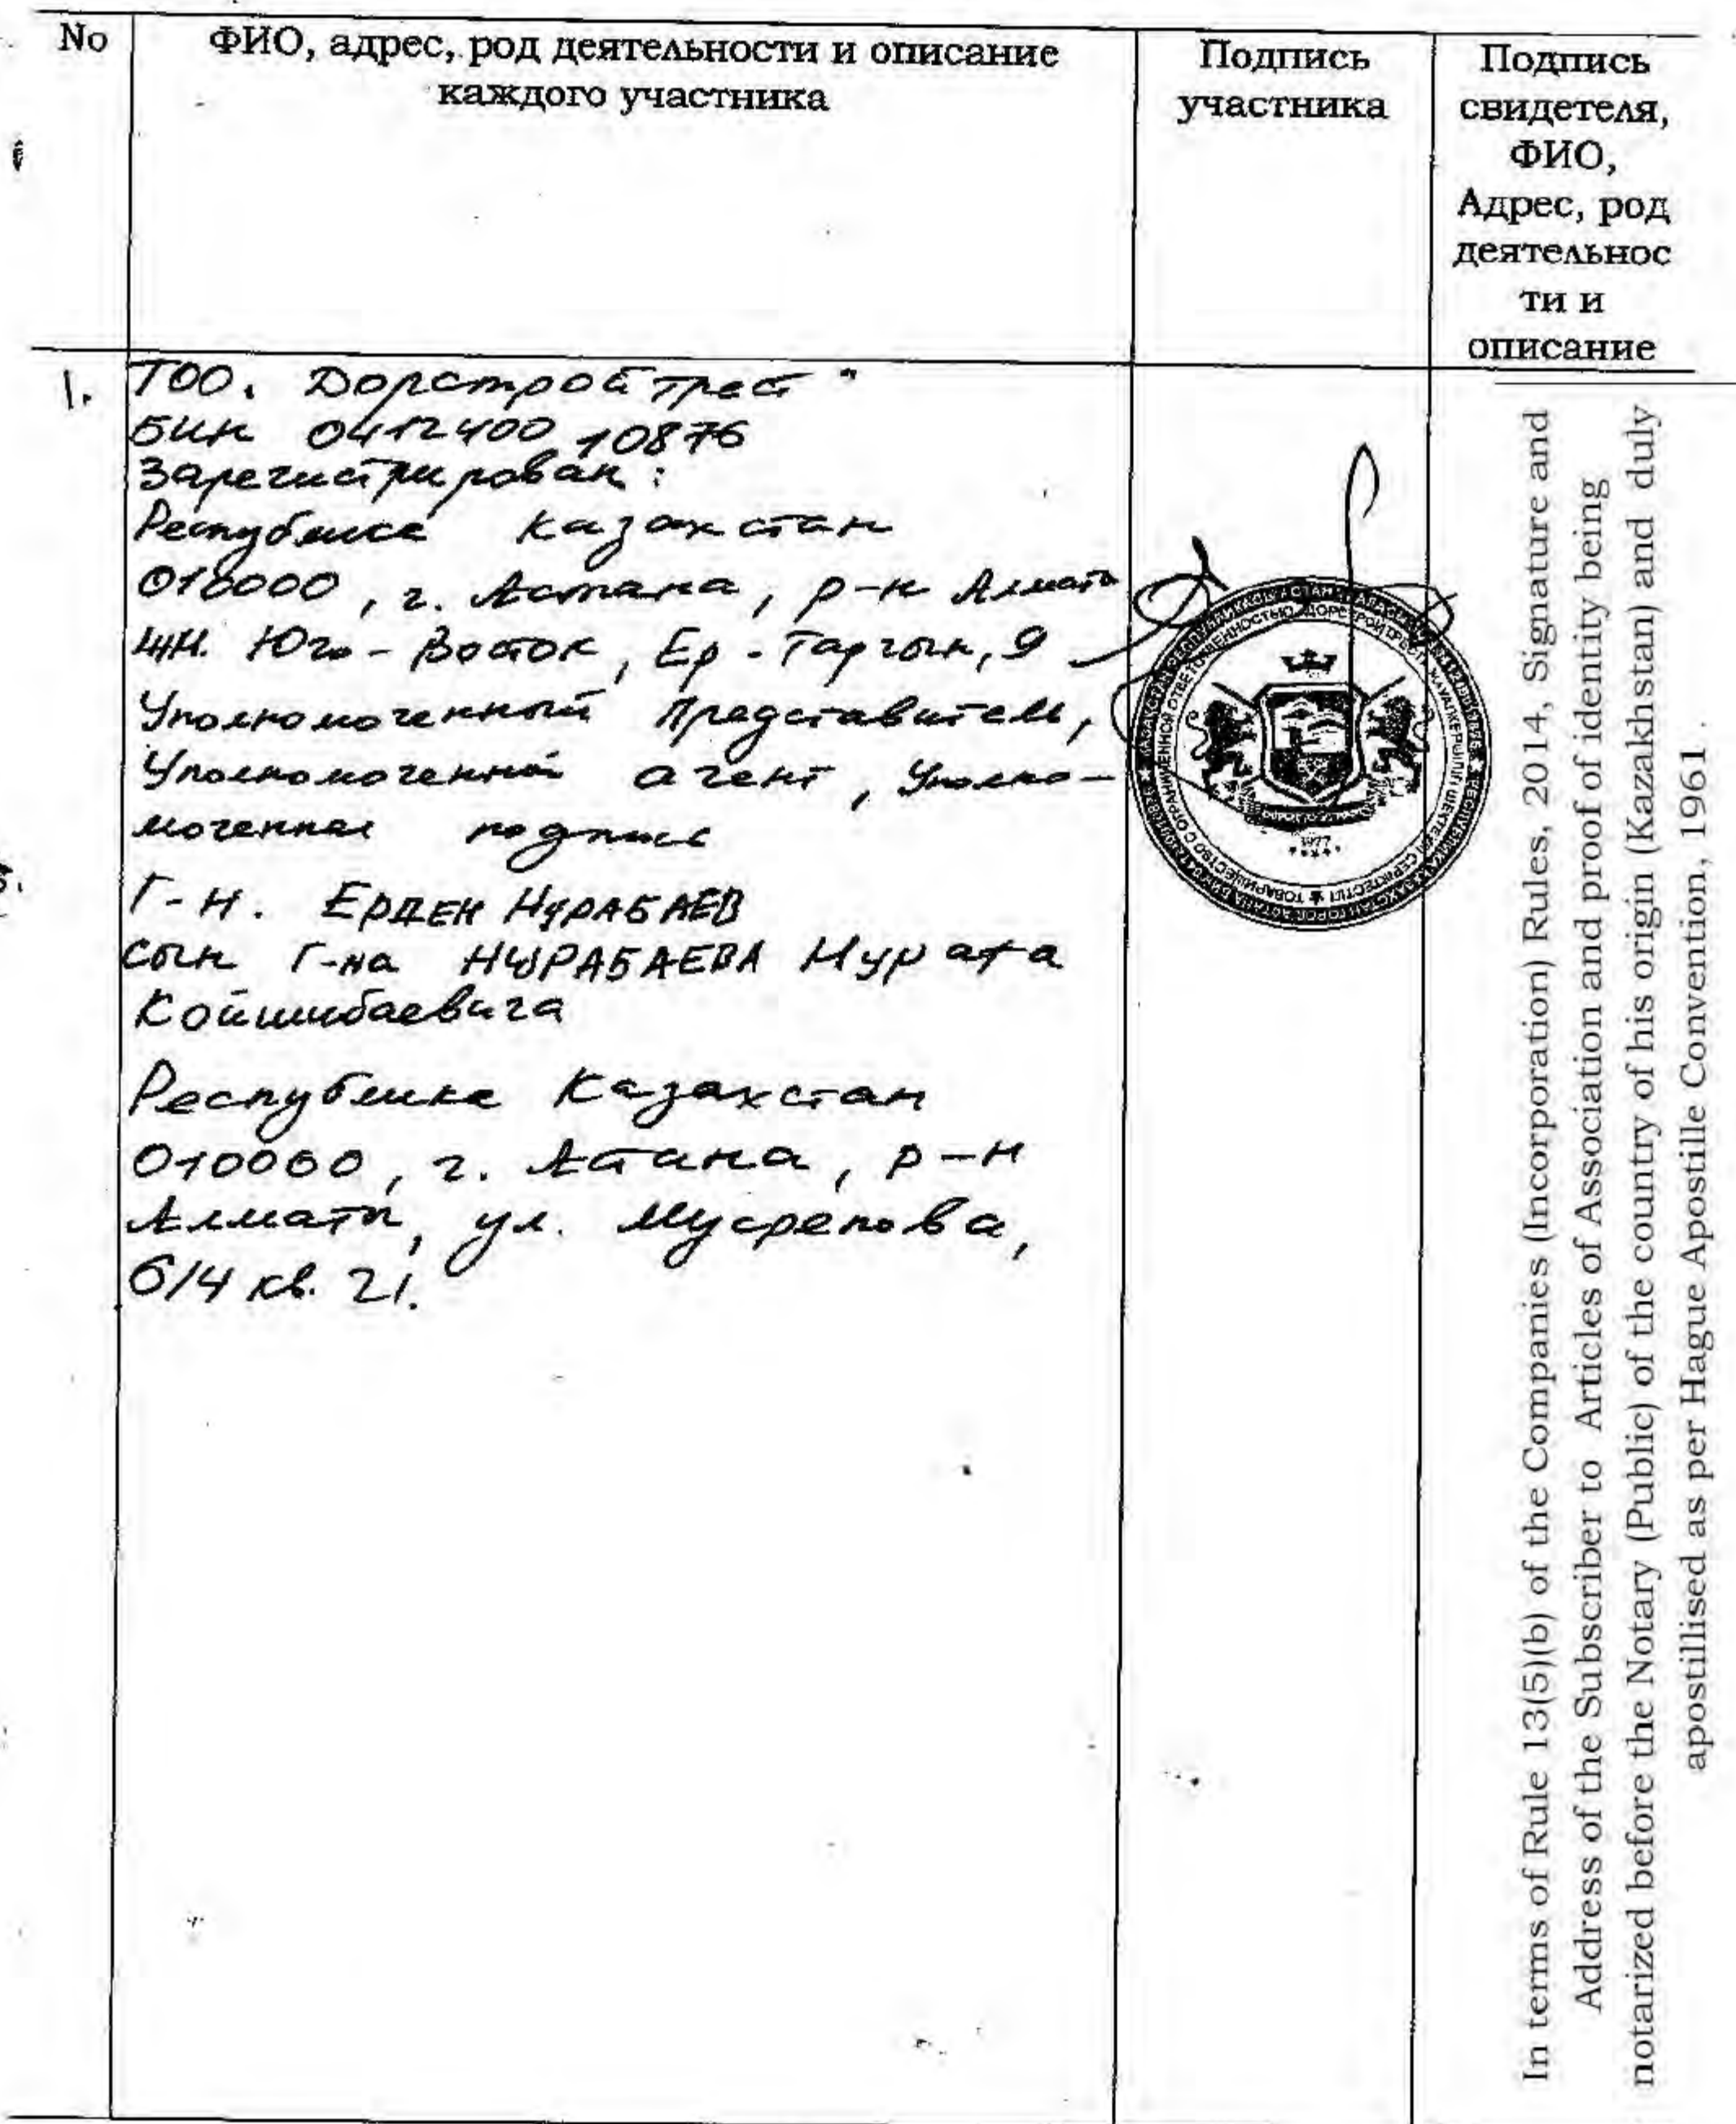 No
ФИО, адрес, род деятельности и описание
каждого участника
Подпись
участника
Подпись
свидетеля,
ФИО,
Адрес, род
деятельнос
ти и
описание
1. ТОО. Дорстрой трест"
БИН 0412400 10876
Зарегистрирован:
Республика Казахстан
010000, г. Астана, р-н Алматы
ж.м. Юго-Восток, Ер-Таргын, 9
Уполномоченный Представитель,
Уполномоченный агент, Уполно-
моченная подпись
Г-Н. ЕРДЕН НУРАБАЕВ
сын Г-на НУРАБАЕВА Мурата
Койшибаевича
Республика Казахстан
010000, г. Астана, р-н
Алматы, ул. Мусрепова,
6/4 кв. 21.
ТОВАРИЩЕСТВО С ОГРАНИЧЕННОЙ ОТВЕТСТВЕННОСТЬЮ
1977
In terms of Rule 13(5)(b) of the Companies (Incorporation) Rules, 2014, Signature and
Address of the Subscriber to Articles of Association and proof of identity being
notarized before the Notary (Public) of the country of his origin (Kazakhstan) and duly
apostillised as per Hague Apostille Convention, 1961.